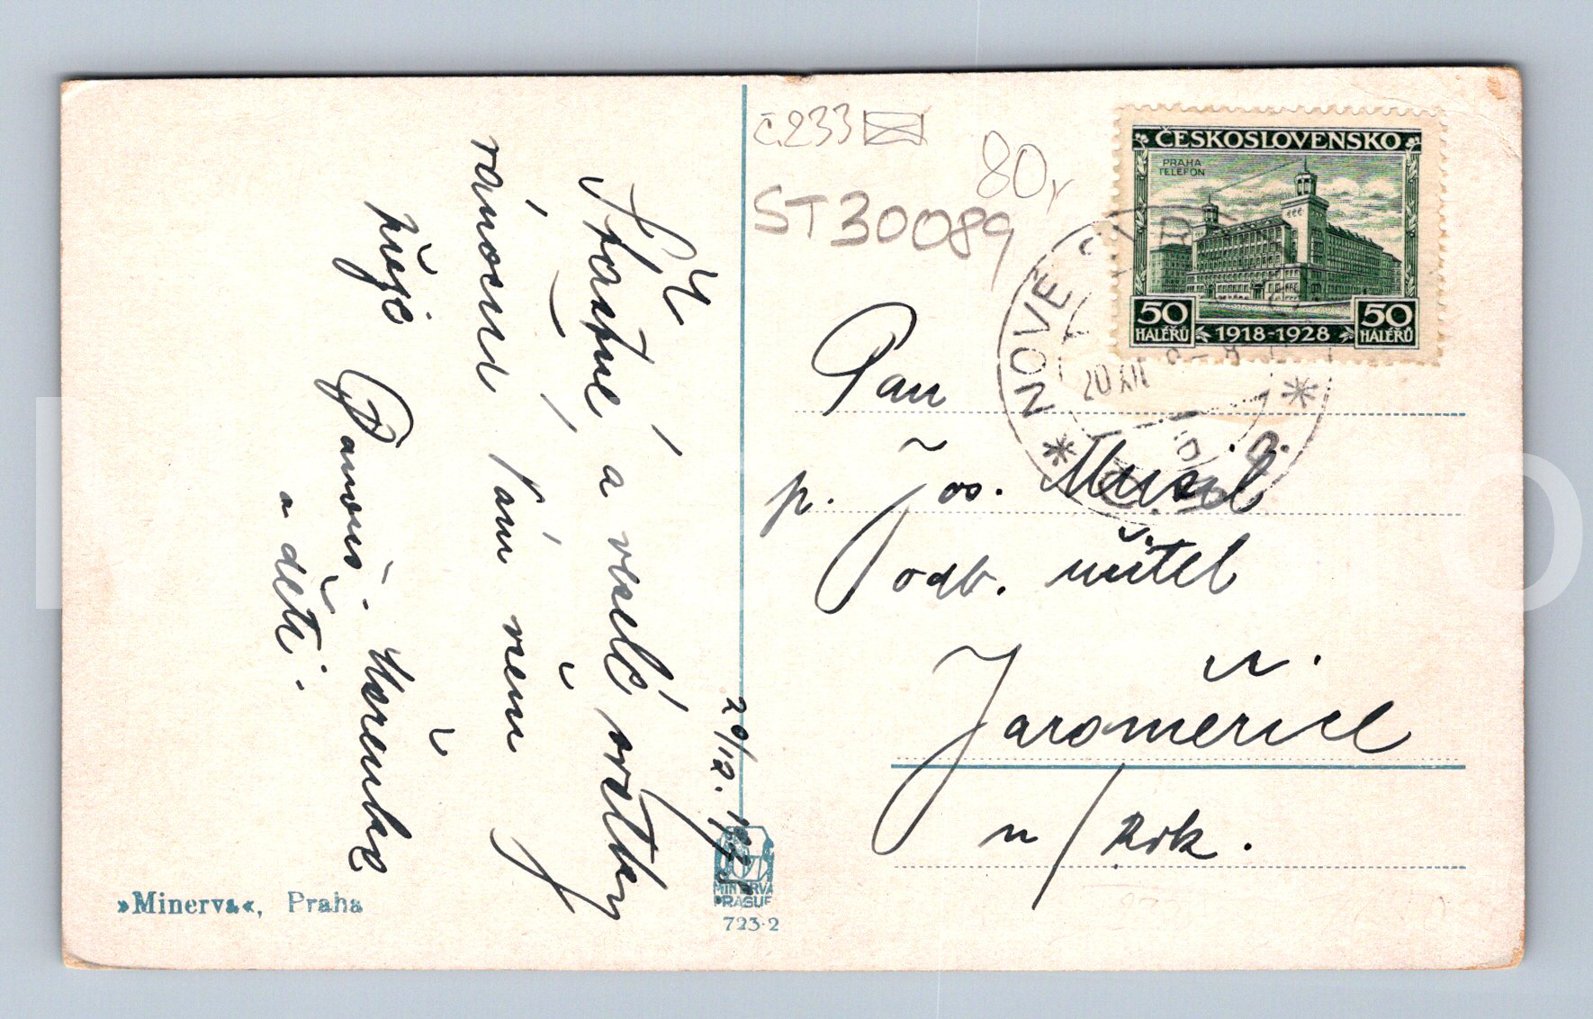 Šťastné a veselé svátky
vánoční Vám všem
přeje
a děti.
20/12.
»Minerva«, Praha
MINERVA
PRAGUE
723-2
č. 233
80,-
ST30089
ČESKOSLOVENSKO
PRAHA
TELEFON
50 50
HALÉŘŮ 1918-1928 HALÉŘŮ
NOVÉ
20 XII
Pan
p. Jos. Musil
odb. učitel
Jaroměřice
n/Rok.